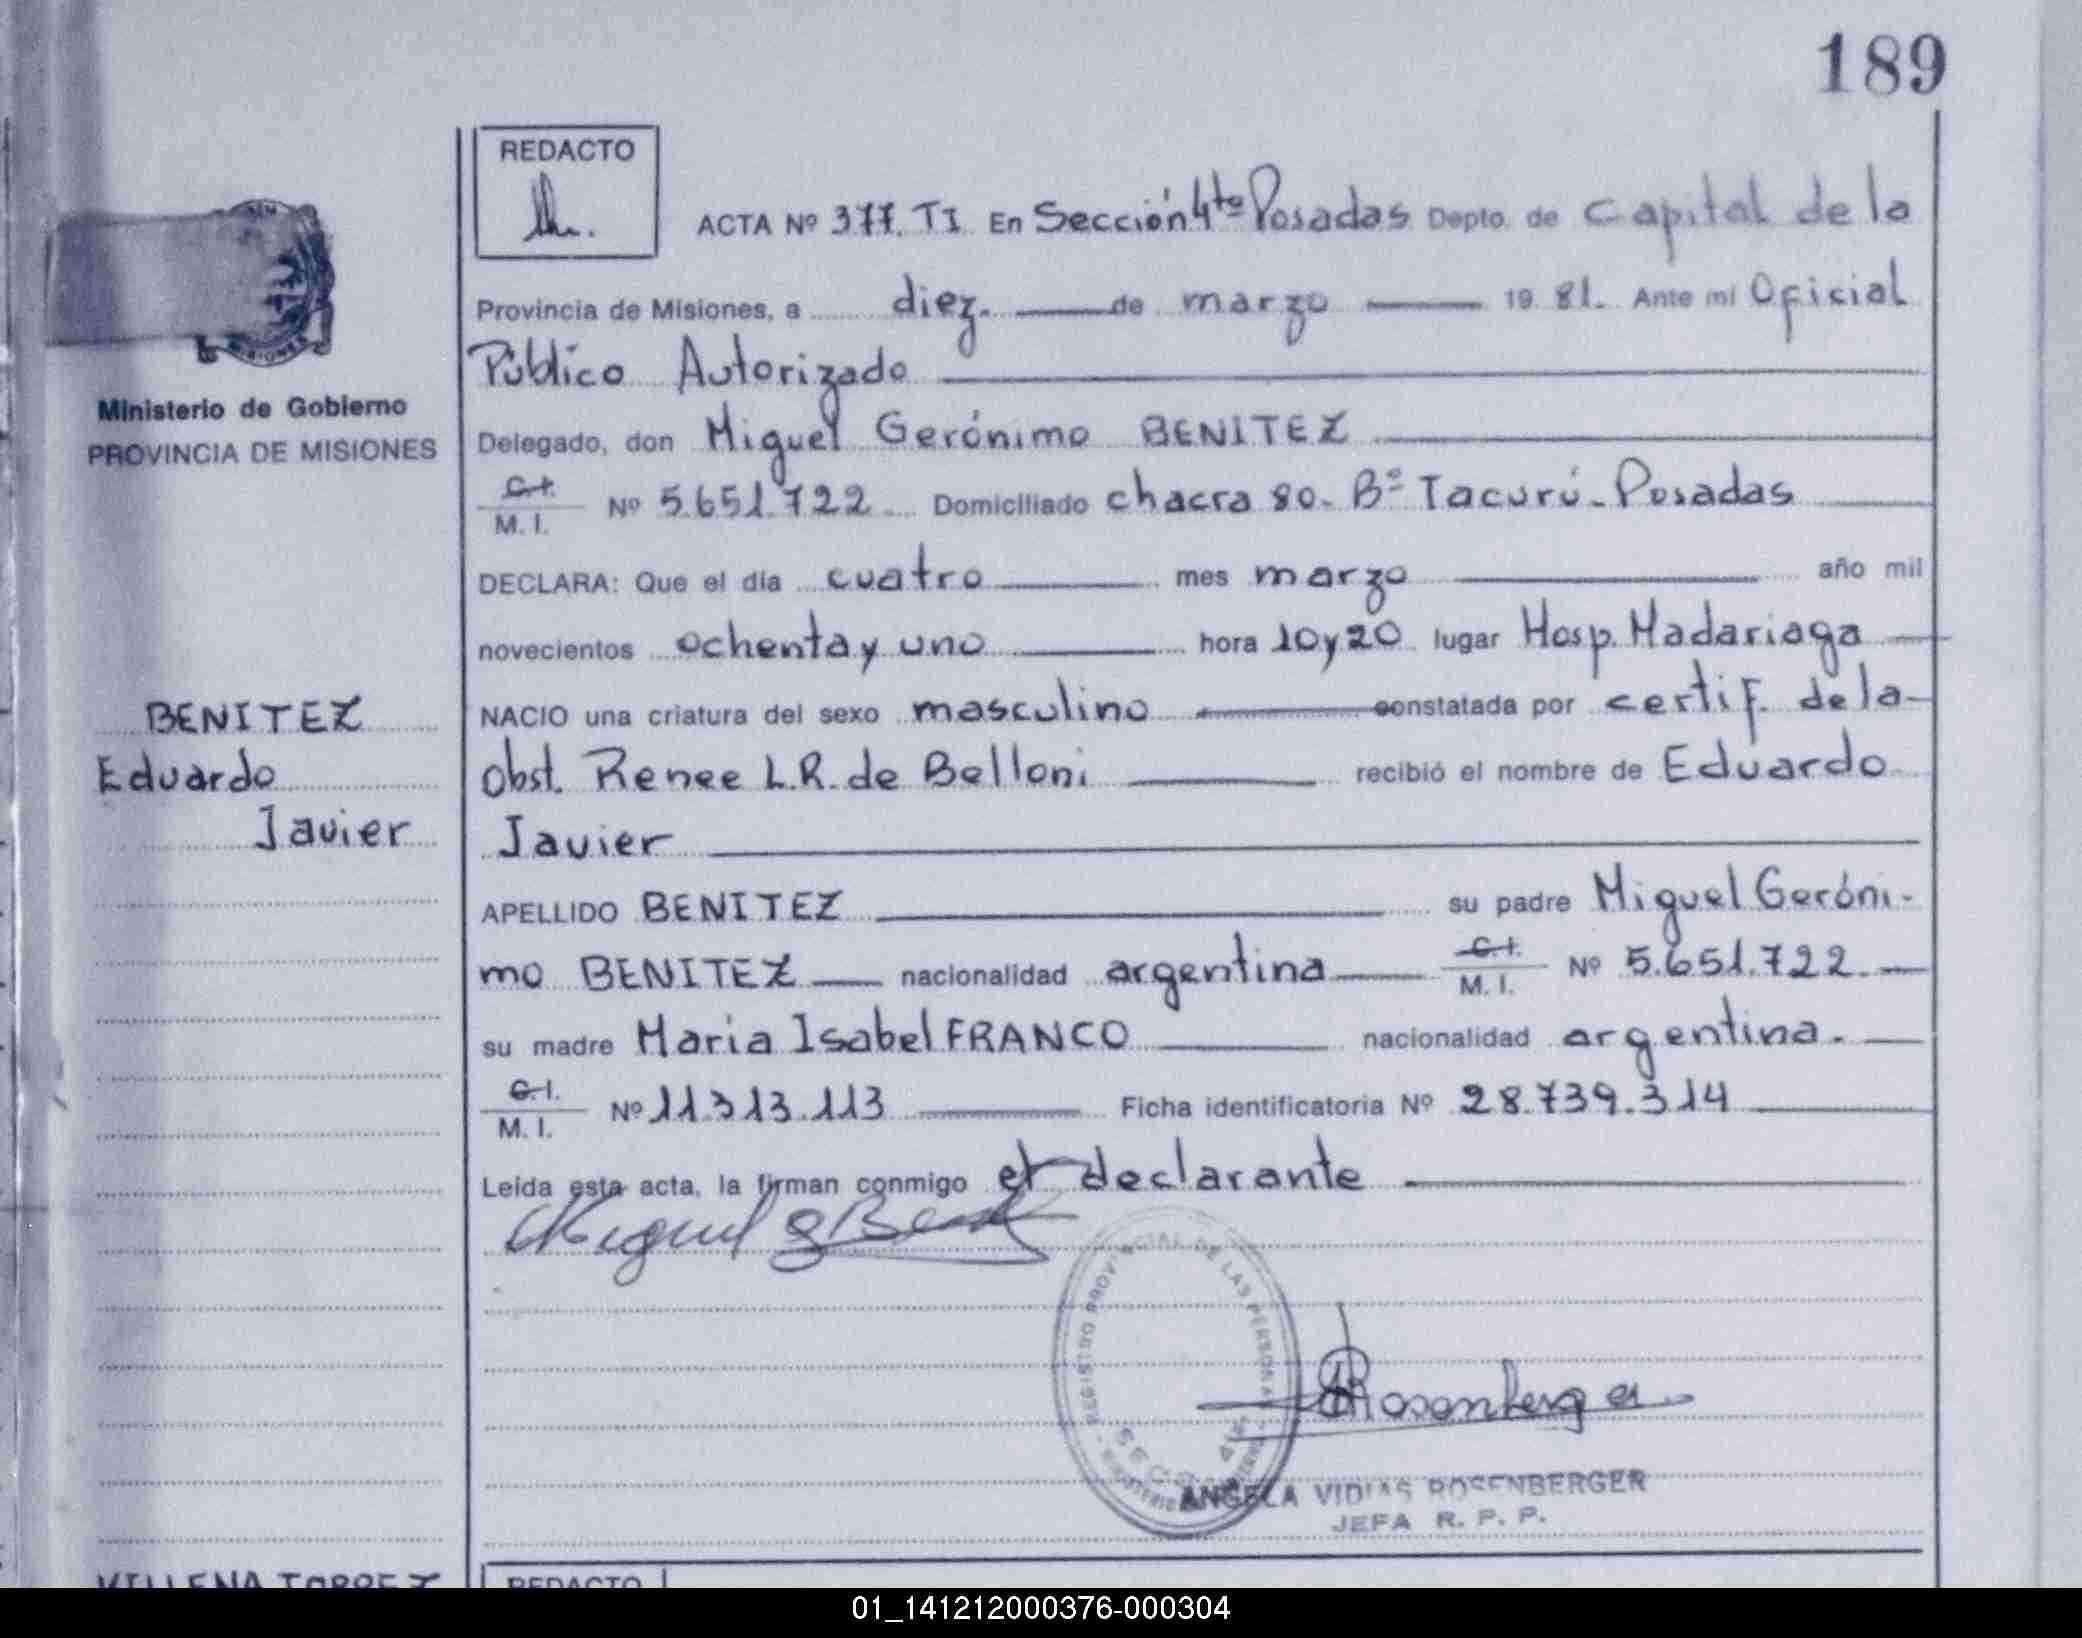 189
REDACTO
ACTA Nº 377. TI. En Sección 4ta Posadas Depto. de Capital de la
Provincia de Misiones, a diez. de marzo 19 81. Ante mi Oficial
Público Autorizado
Delegado, don Miguel Gerónimo BENITEZ
C.I.
M. I. Nº 5.651.722 Domiciliado chacra 80. Bº Tacurú - Posadas
DECLARA: Que el día cuatro mes marzo año mil
novecientos ochenta y uno hora 10 y 20 lugar Hosp. Madariaga
NACIO una criatura del sexo masculino constatada por certif. de la
obst. Renee L.R. de Belloni recibió el nombre de Eduardo
Javier
APELLIDO BENITEZ su padre Miguel Geróni-
mo BENITEZ nacionalidad argentina C.I.
M. I. Nº 5.651.722.
su madre Maria Isabel FRANCO nacionalidad argentina.
C.I.
M. I. Nº 11.313.113 Ficha identificatoria Nº 28.739.314
Leída esta acta, la firman conmigo el declarante
Miguel G Benitez
REGISTRO PROVINCIAL DE LAS PERSONAS
Rosenberger
ANGELA VIDIAS ROSENBERGER
JEFA R. P. P.
MISIONES
Ministerio de Gobierno
PROVINCIA DE MISIONES
BENITEZ
Eduardo
Javier
VILLENA TORREZ
REDACTO
01_141212000376-000304